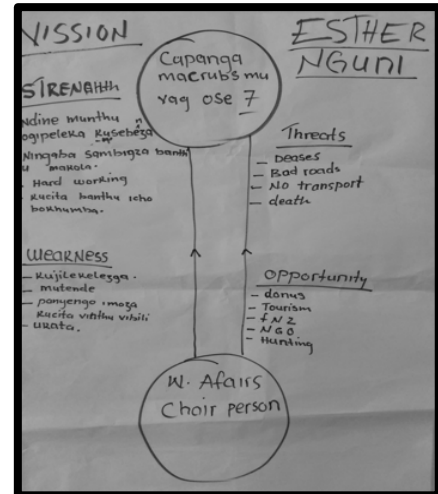 VISSION
ESTHER
NGUNI
Capanga
macrubs mu
vag ose 7
STRENGHTH
Ndine munthu
ogipeleka kusebeza
Ningaba sambizga banthu
makola.
Hard working
- kucita banthu icho
bakhumba.
Threats
- Deases
- Bad roads
- No transport
- death
WEAKNESS
- Kujilekelezga.
- mutende
- panyengo imoza
kucita vinthu vibili
- ukata.
OPPORTUNITY
- donus
- Tourism
- fNZ
- NGO
- Hunting
W. Afairs
Chair person